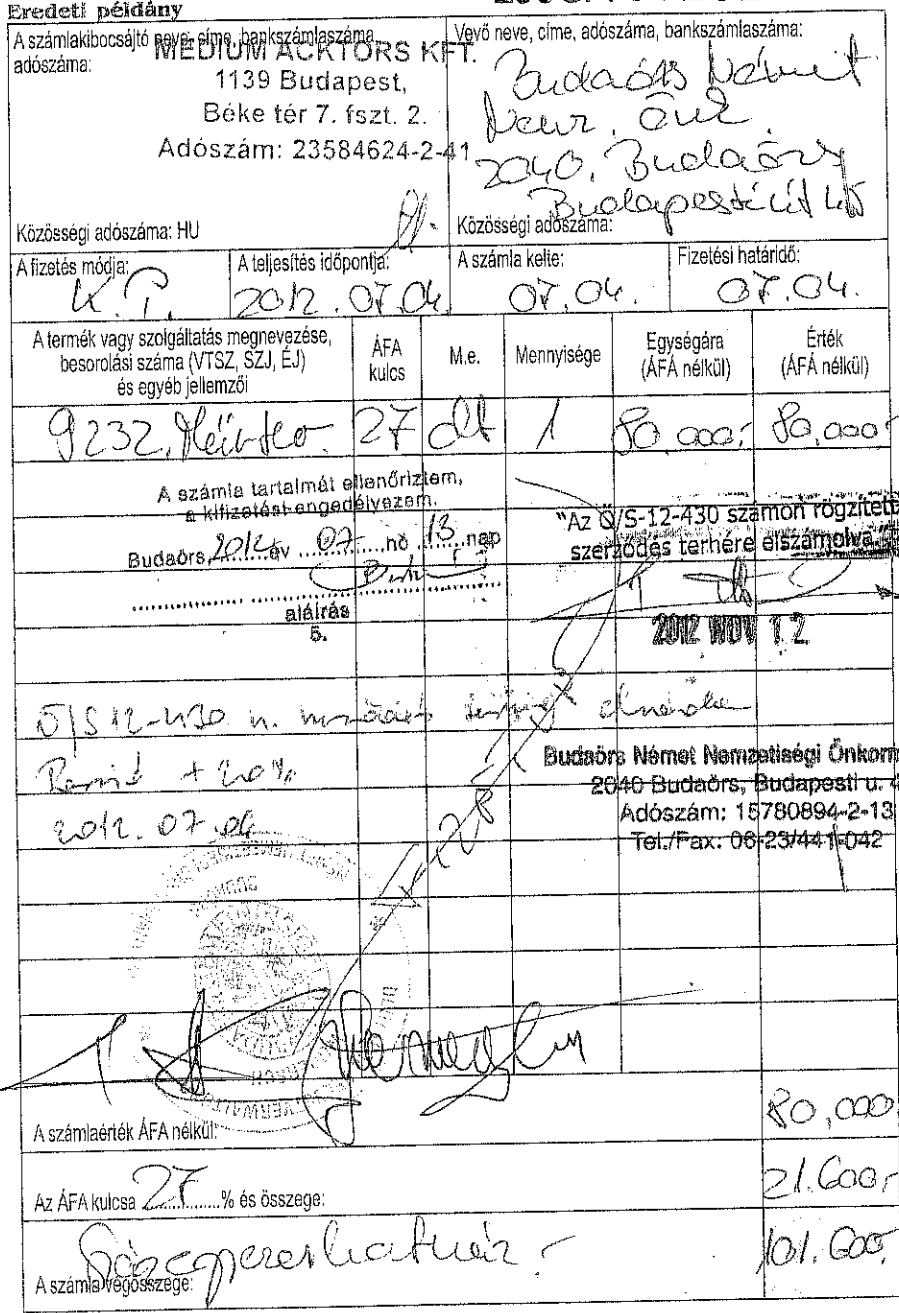 Eredeti példány
A számlakibocsájtó neve, címe, bankszámlaszáma,
adószáma:
MEDIUM ACKTORS KFT.
1139 Budapest,
Béke tér 7. fszt. 2.
Adószám: 23584624-2-41
Közösségi adószáma: HU
Vevő neve, címe, adószáma, bankszámlaszáma:
Budaörs Német
Nemz. Önk.
2040. Budaörs
Budapesti út 45
Közösségi adószáma:
A fizetés módja:
K.P.
A teljesítés időpontja:
2012.07.04.
A számla kelte:
07.04.
Fizetési határidő:
07.04.
A termék vagy szolgáltatás megnevezése,
besorolási száma (VTSZ, SZJ, ÉJ)
és egyéb jellemzői
ÁFA
kulcs
M.e.
Mennyisége
Egységára
(ÁFA nélkül)
Érték
(ÁFA nélkül)
9232. 27 1 80.000,- 80.000,-
A számla tartalmát ellenőriztem,
a kifizetést engedélyezem.
Budaörs, 2012 év 07 hó 13 nap
aláírás
5.
"Az Ö/S-12-430 számon rögzített
szerződés terhére elszámolva."
2012 NOV 12
Ö/S 12-430 n.
+ 20%
2012.07.04
Budaörs Német Nemzetiségi Önkorm
2040 Budaörs, Budapesti u. 4
Adószám: 15780894-2-13
Tel./Fax: 06-23/441-042
A számlaérték ÁFA nélkül:
80,000
Az ÁFA kulcsa 27 % és összege:
21.600,-
A számla végösszege:
101.600,-